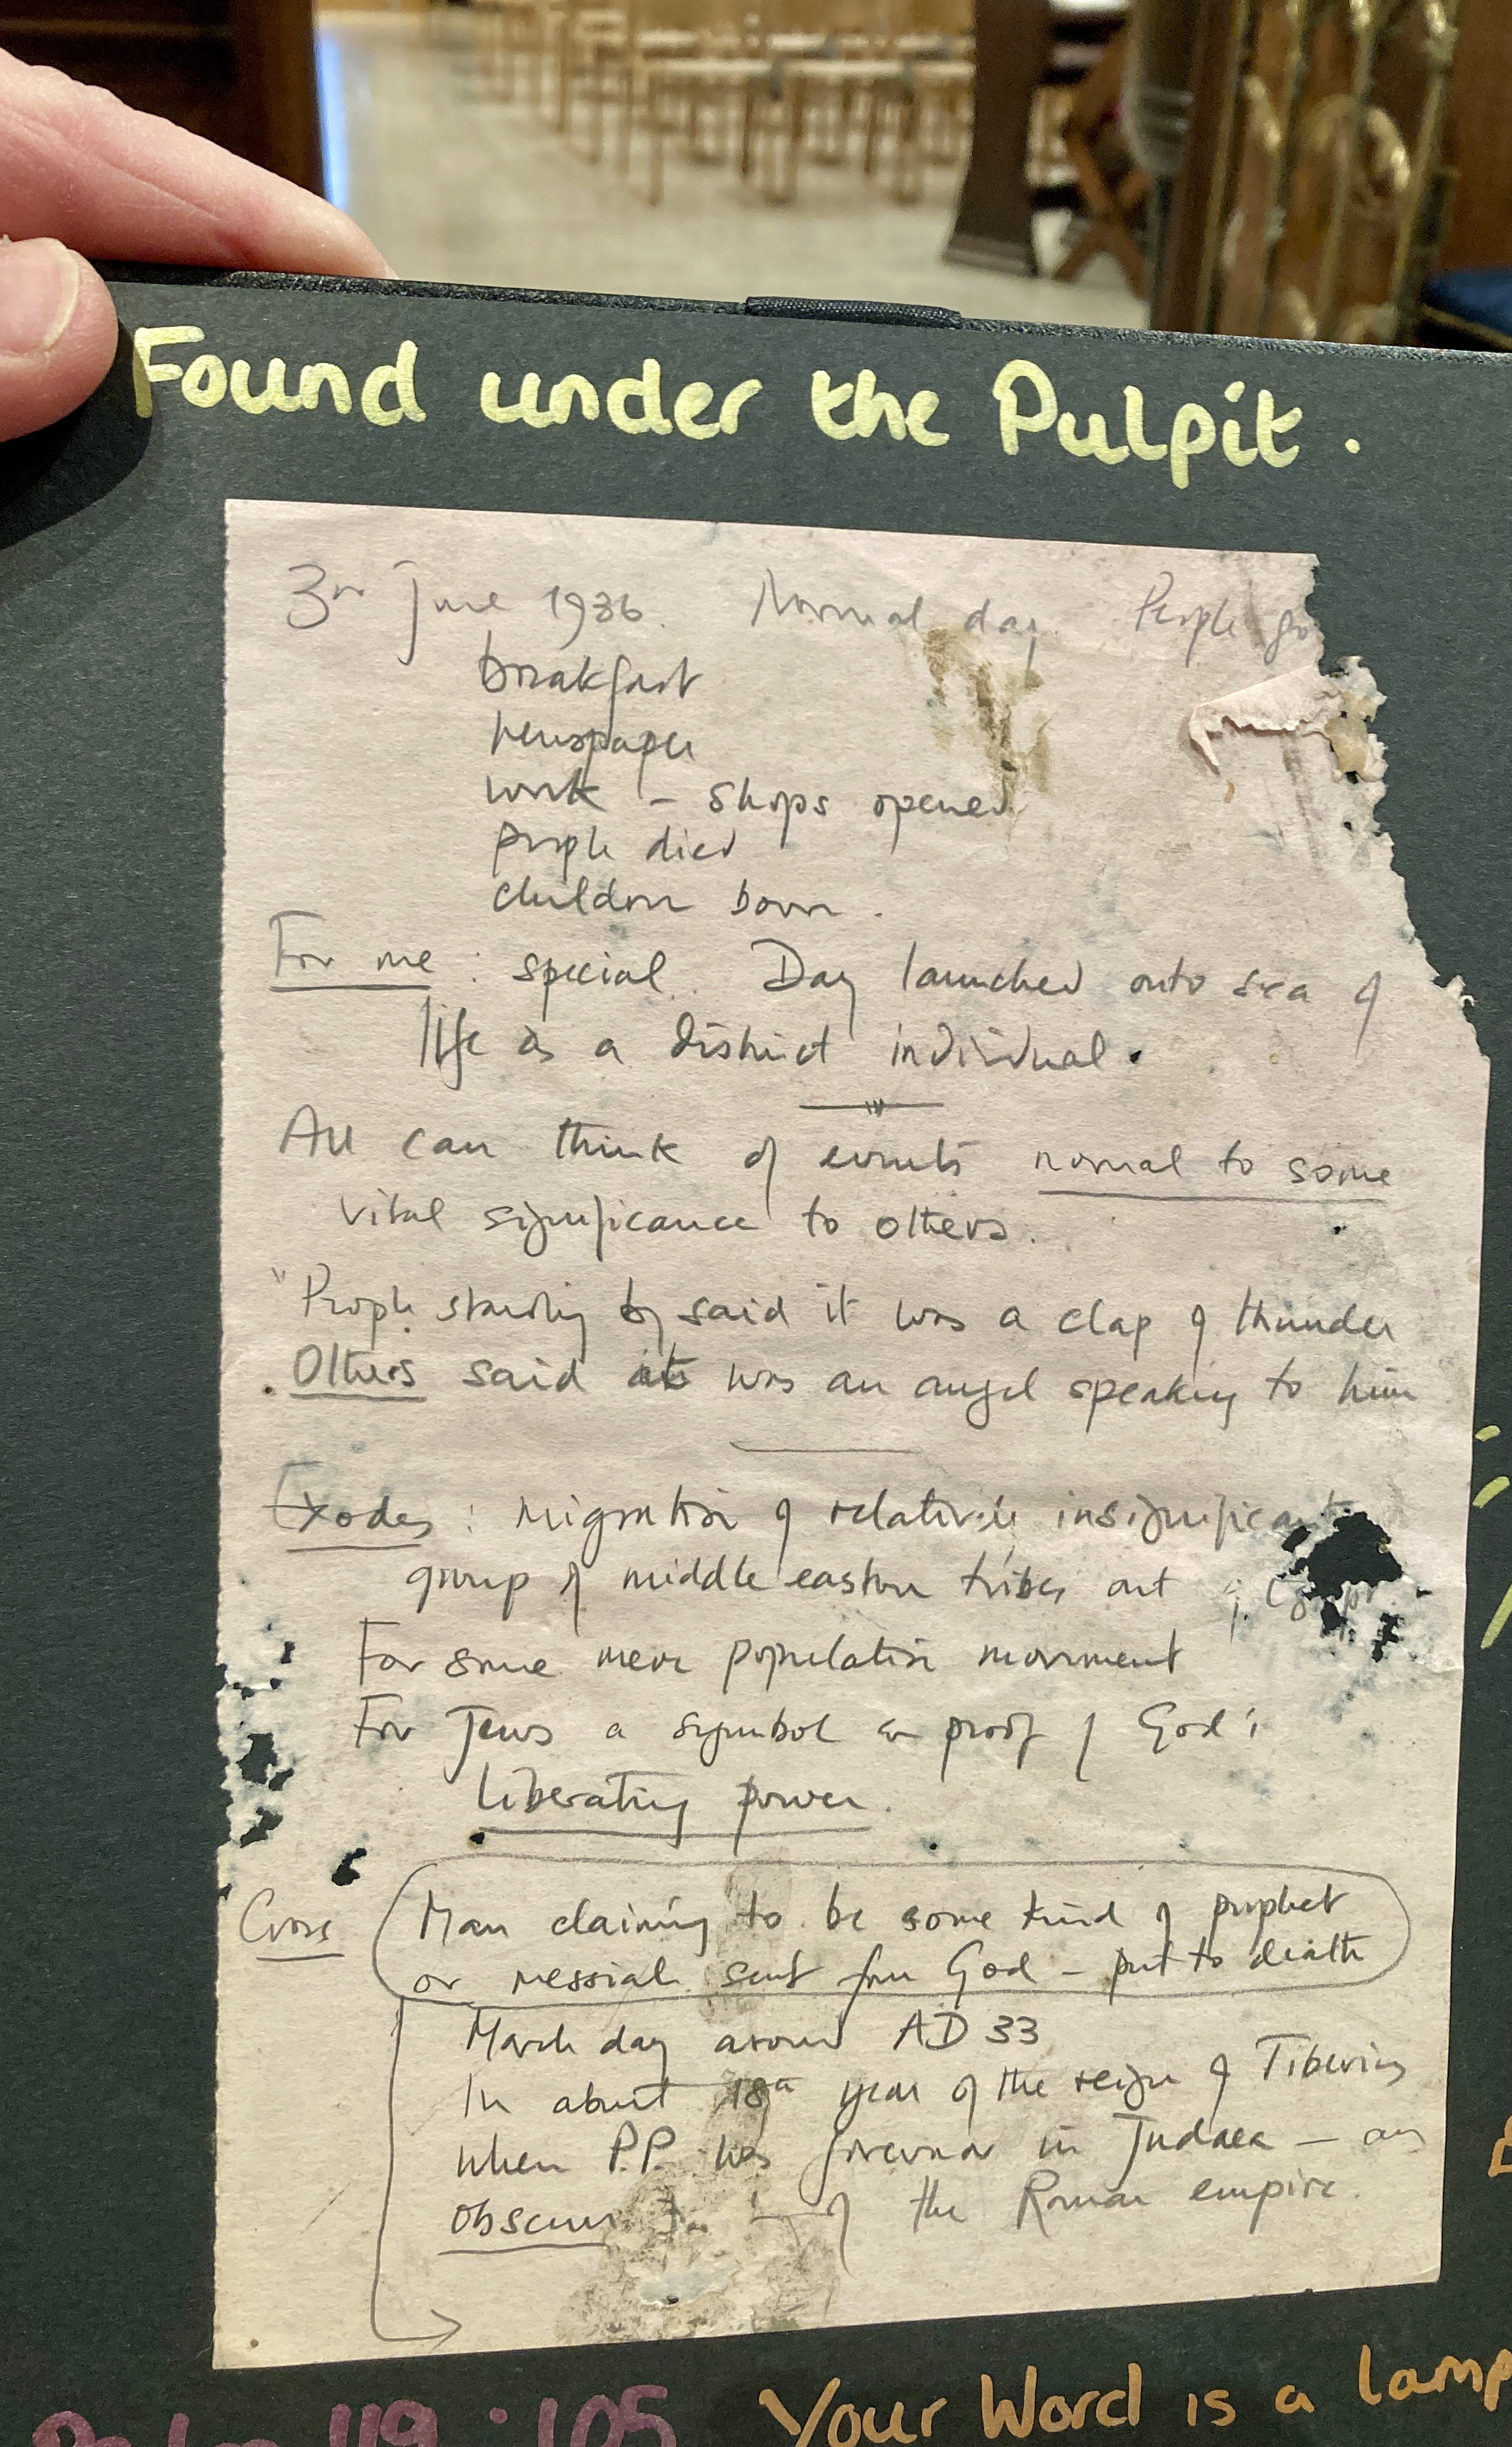 Found under the Pulpit.
3rd June 1936. Normal day. People go
breakfast
newspaper
work – shops opened
people died
children born.
For me: special. Day launched onto sea of
life as a distinct individual.
All can think of events normal to some
vital significance to others.
"People standing by said it was a clap of thunder
Others said it was an angel speaking to him
Exodus: Migration of relatively insignificant
group of middle eastern tribes out of Egypt
For some mere population movement
For Jews a symbol & proof of God's
liberating power.
Cross Man claiming to be some kind of prophet
or messiah sent from God – put to death
March day around AD 33
In about 18th year of the reign of Tiberius
when P.P. was governor in Judaea – an
obscure of the Roman empire.
Psalm 119:105 Your Word is a lamp